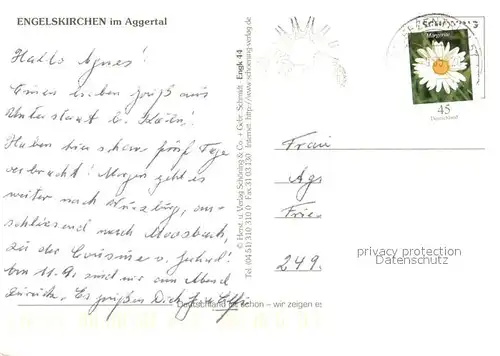 ENGELSKIRCHEN im Aggertal
Hallo Agnes!
Einen lieben Gruß aus
b. Köln!
Haben hier schon fünf Tage
verbracht! Morgen geht es
weiter nach Würzburg, an-
schließend nach Moosbach,
zu der Cousine u.
Am 11.9. sind wir am Abend
zurück. Es grüßen Dich
© Herst. u. Verlag Schöning & Co. + Gebr. Schmidt · Engk 44
(04 51) 310 310 0 · Fax 31 03 130 · Internet: http://www.schoening-verlag.de
Margerite
45
Deutschland
Frau
Ag
Frie
249.
privacy protection
Datenschutz
Deutschland ist schön – wir zeigen es